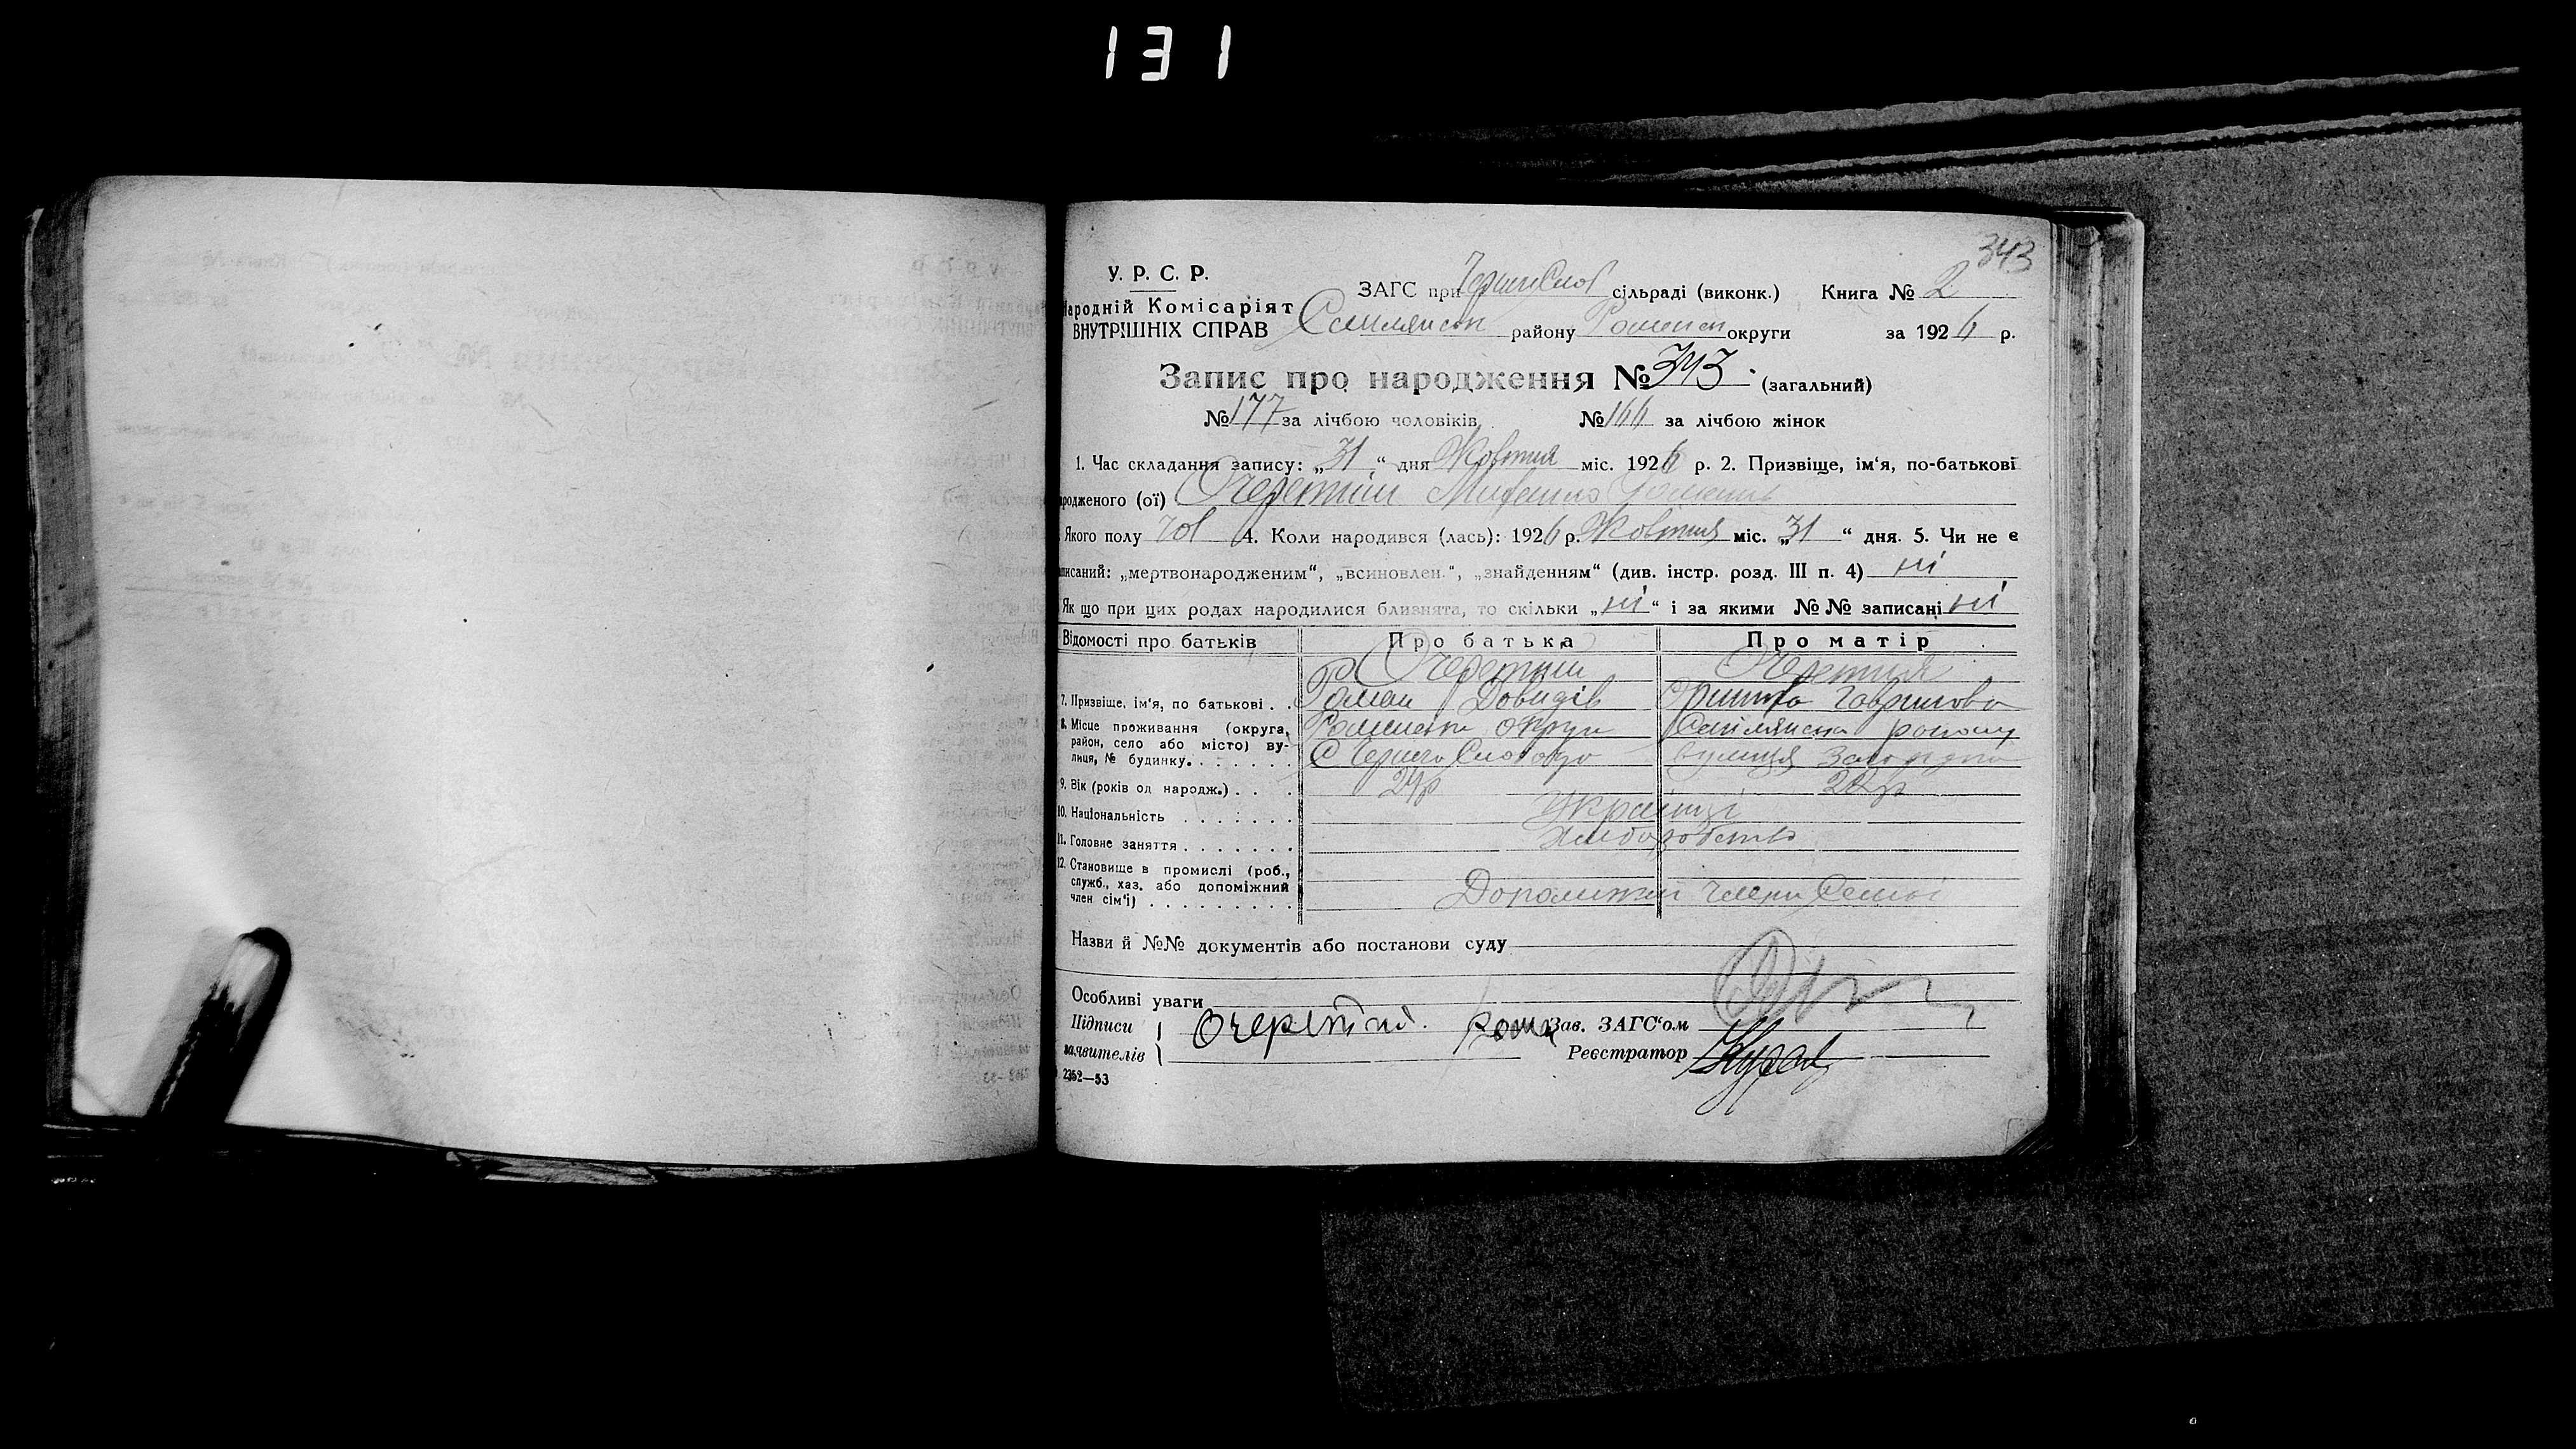 131
343
У. Р. С. Р.
Народній Комісаріят
ВНУТРІШНІХ СПРАВ
ЗАГС при сільраді (виконк.) Книга № 2
Смілянськ району Роменськ округи за 1926 р.
Запис про народження № 343. (загальний)
№ 177 за лічбою чоловіків № 166 за лічбою жінок
1. Час складання запису: „31“ дня Жовтня міс. 1926 р. 2. Призвіще, ім‘я, по-батькові
родженого (ої) Очеретній Михайло
Якого полу чол 4. Коли народився (лась): 1926 р. Жовтня міс. „31“ дня. 5. Чи не є
записаний: „мертвонародженим“, „всиновлен.“, „знайденням“ (див. інстр. розд. III п. 4) ні
Як що при цих родах народилися близнята, то скільки „ні“ і за якими №№ записані ні
Відомості про батьків Про батька Про матір
Очеретній Очеретня
7. Призвіще, ім‘я, по батькові . . Роман Довидів Гаврилова
8. Місце проживання (округа, район, село або місто) вулиця, № будинку. . . . . . . Роменська округи Смілянська району
С вулиця
9. Вік (років од народж.) . . . 24р 22р
10. Національність . . . . . . . Українці
11. Головне заняття . . . . . . . Хліборобство
12. Становище в промислі (роб., служб., хаз. або допоміжний член сім‘ї) . . . . . . . . . . Допоміжні члени Семьї
Назви й №№ документів або постанови суду
Особливі уваги
Підписи Очеретній. Рома Зав. ЗАГС‘ом
заявителів Реєстратор
2352—53